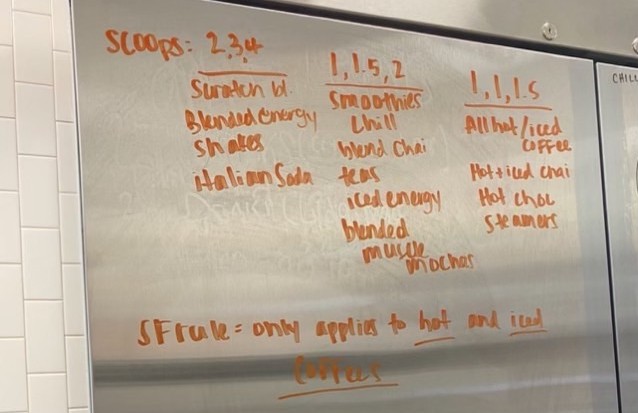 Scoops: 2,3,4
Scratch bl.
Blended energy
shakes
italian Soda
1, 1.5, 2
Smoothies
Chill
blend Chai
teas
iced energy
blended
muscle
mochas
1, 1, 1.5
All hot/iced
coffee
Hot+iced chai
Hot choc
Steamers
SF rule = only applies to hot and iced
Coffees
CHILL